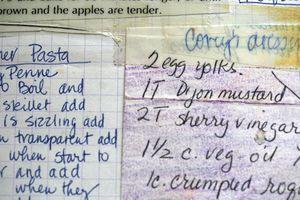 brown and the apples are tender.
Pasta
Penne
to Boil and
skillet add
is sizzling add
n transparent add
when start to
er and add
when they
Cory's dressi
2 egg yolks.
1 T Dijon mustard
2 T sherry vinegar
1 1/2 c. veg. oil
1 c. crumpled roq